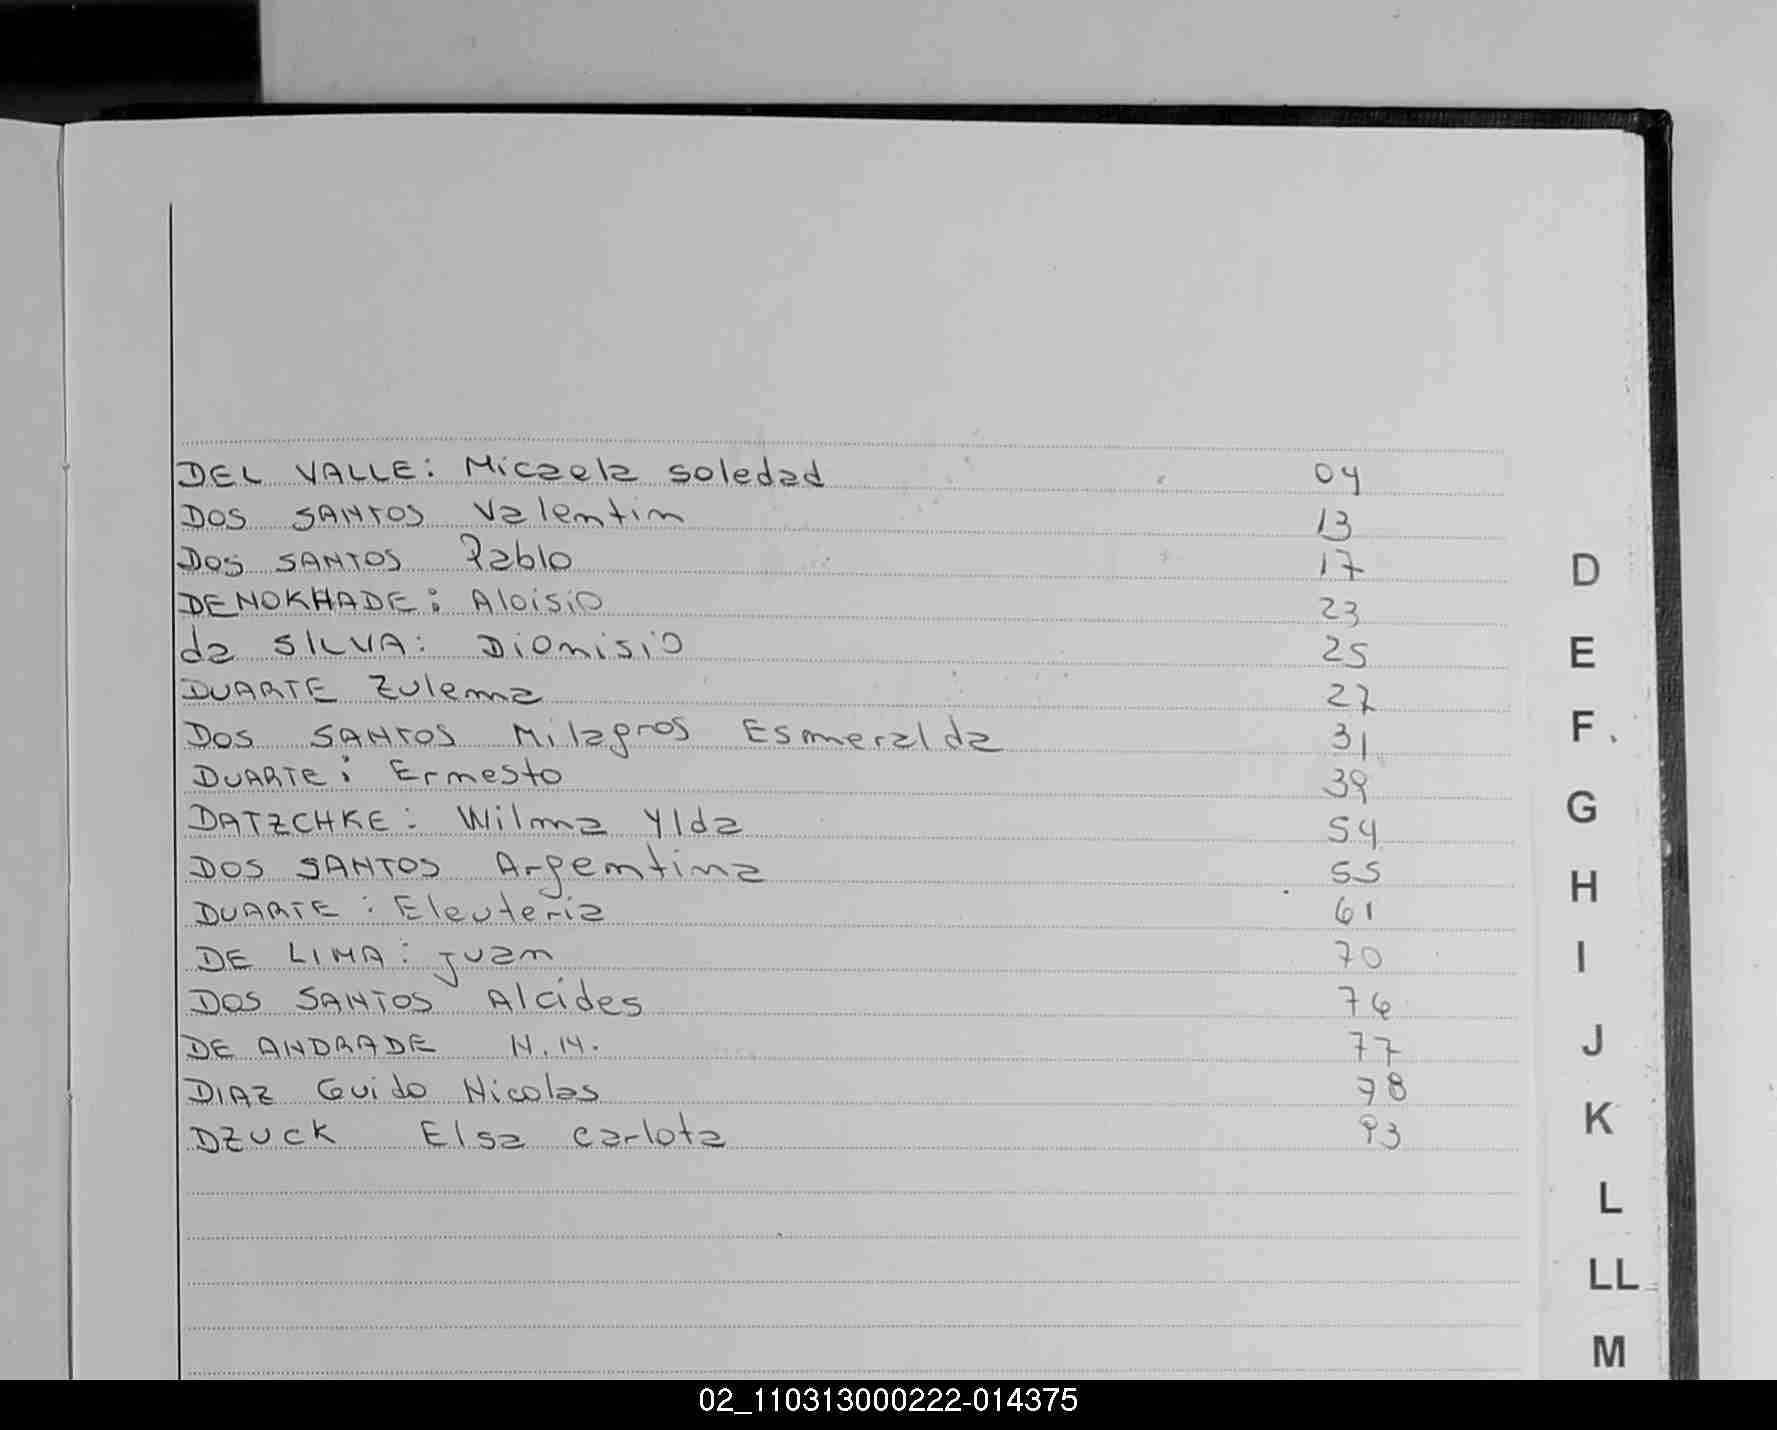 DEL VALLE: Micaela Soledad 04
DOS SANTOS Valentin 13
DOS SANTOS Pablo 17
DENOKHADE: Aloisio 23
da SILVA: Dionisio 25
DUARTE Zulema 27
DOS SANTOS Milagros Esmeralda 31
DUARTE: Ernesto 39
DATZCHKE: Wilma Ylda 54
DOS SANTOS Argentina 55
DUARTE: Eleuteria 61
DE LIMA: Juan 70
DOS SANTOS Alcides 76
DE ANDRADE N.N. 77
DIAZ Guido Nicolas 78
DZUCK Elsa Carlota 93
D
E
F
G
H
I
J
K
L
LL
M
02_110313000222-014375